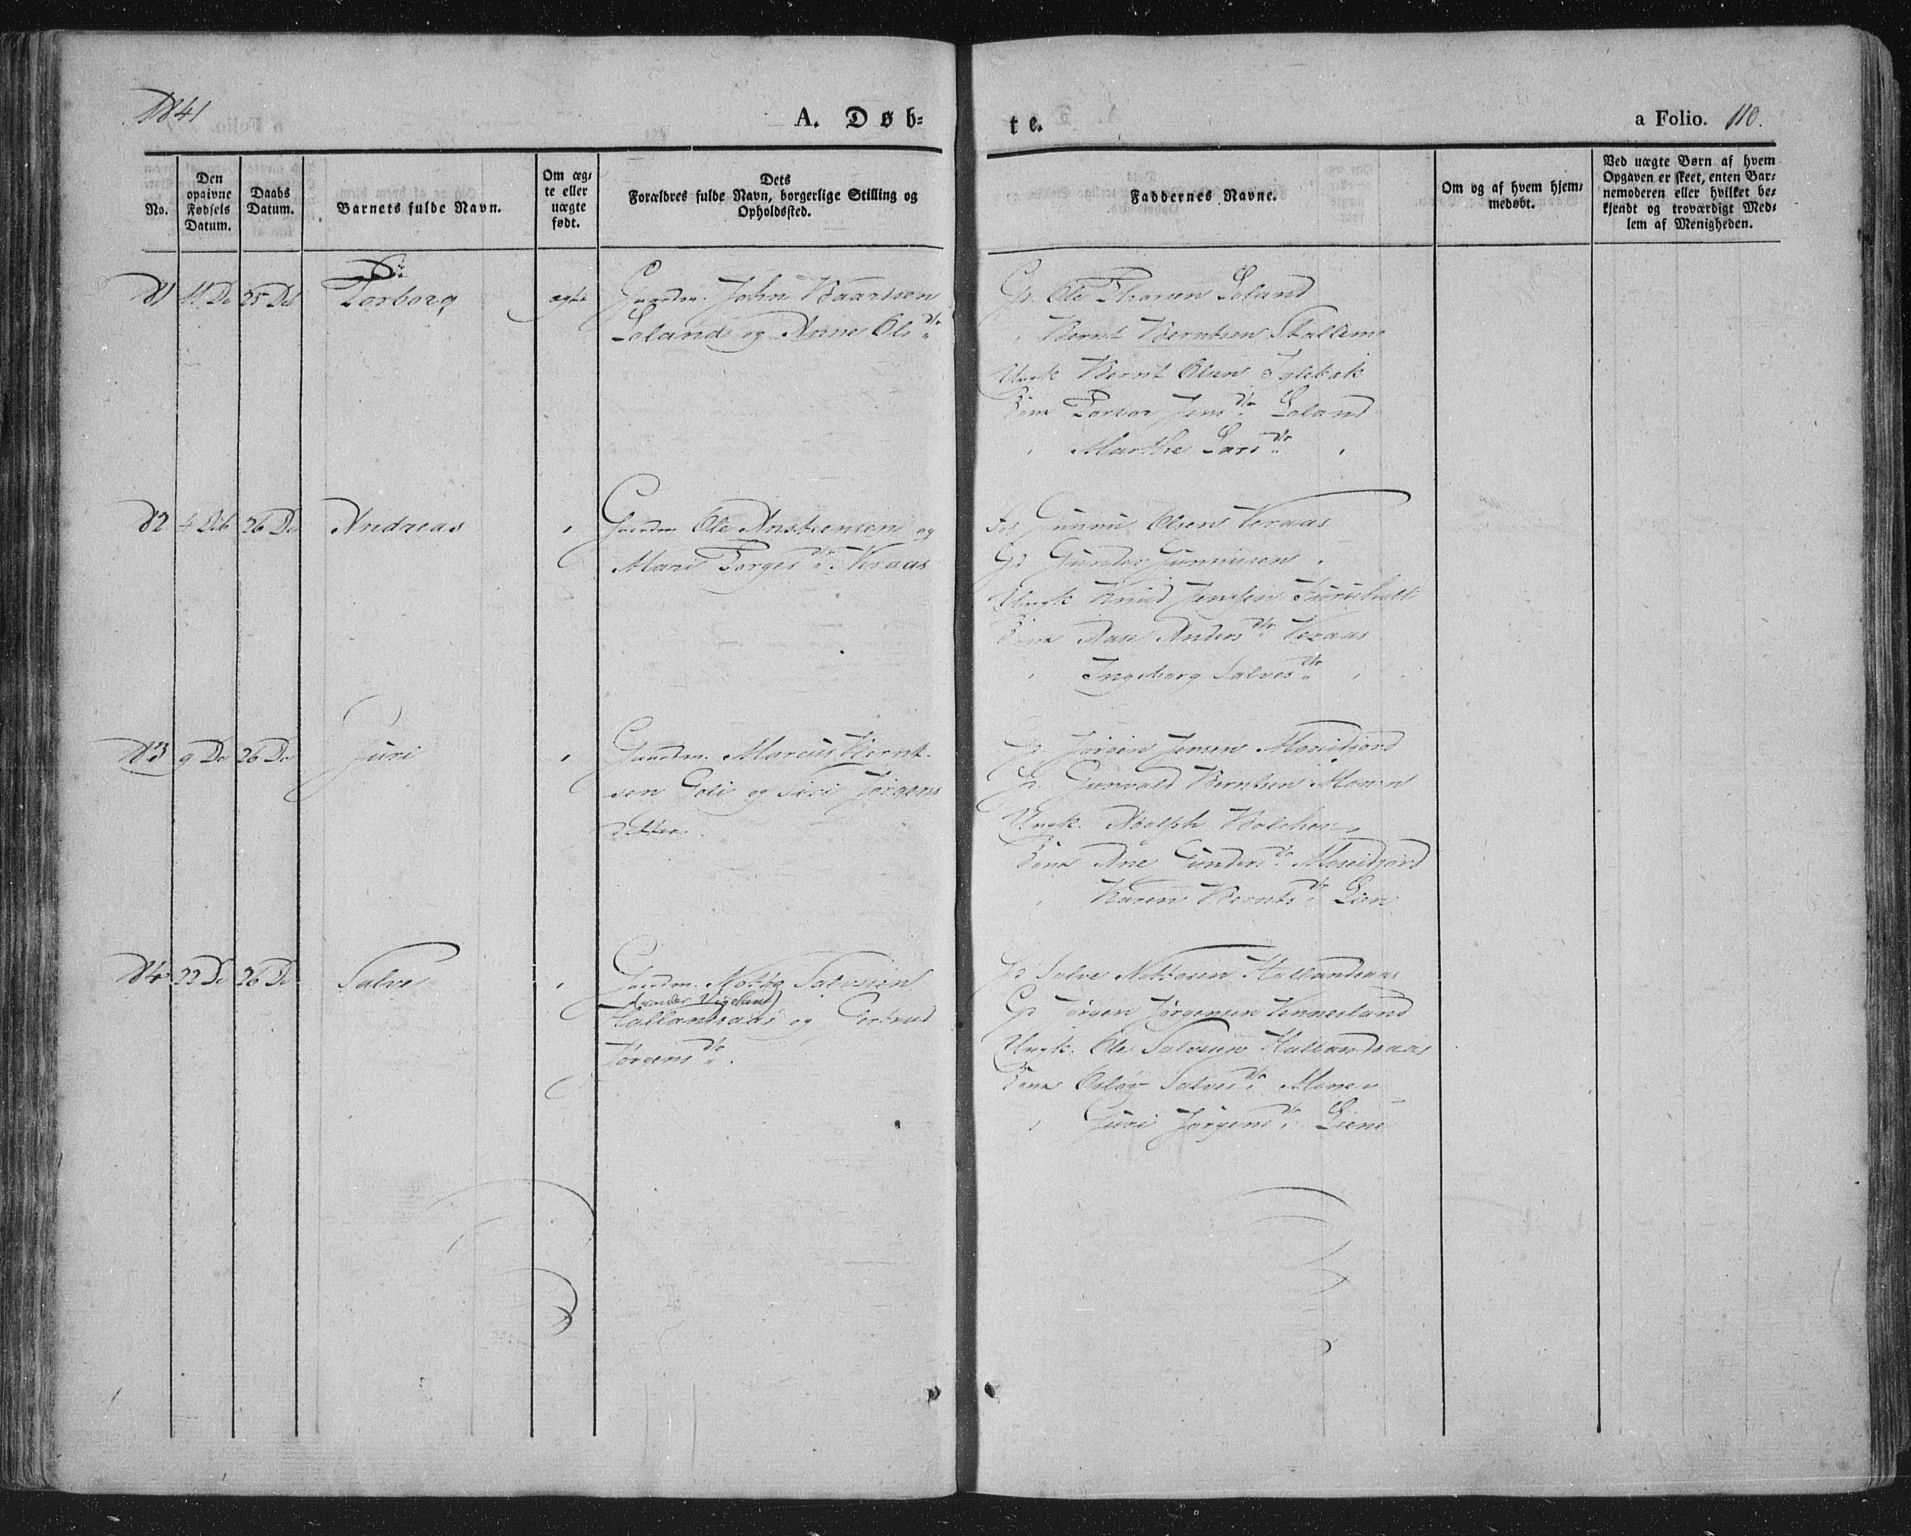 1841
A. Døb-
te.
a Folio. 110.
No.
Den opgivne Fødsels Datum.
Daabs Datum.
Barnets fulde Navn.
Om ægte eller uægte født.
Dets
Forældres fulde Navn, borgerlige Stilling og
Opholdssted.
Faddernes Navne.
Om og af hvem hjem-
medøbt.
Ved uægte Børn af hvem
Opgaven er skeet, enten Bar-
nemoderen eller hvilket be-
kjendt og troværdigt Med-
lem af Menigheden.
81 11 De 25 De Torborg ægte Gaardm. John Baardsen
Loland og Anne Ols dtr
Gp. Ole Loland
Bernt Berntsen
Ungk Bernt Olsen
Kone Torbor Jens dtr Loland
Marthe Lars dtr
82 4 Deb 26 De Andreas Gaardm Ole Anstensen og
Mari Torges dtr Veraas
Gunnu Olsen Veraas
Gp Gunder Gunnusen
Ungk Knud Jensen
Kone Aase Anders dtr Veraas
Ingeborg Salves dtr
83 9 De 26 De Juri Gaardm. Marcus Bernt-
sen Goli og Siri Jørgens
datter.
Gp. Jørgen Jensen Moseidjord
Gp. Gunvald Berntsen Monen
Ungk. Adolph
Kone Ane Gunders dtr Moseidjord
Karen Bernts dtr Lien
84 22 De 26 De Salve Gaardm. Notto Salvesen
(under Vigeland)
Hallandsaas og Gertrud
Jørgens dtr.
Gp Salve Nottosen Hallandsaas
Gp Jørgen Jørgensen Vennesland
Ungk. Ole Salvesen Hallandsaas
Kone Oslav Salves dtr Monen
Guri Jørgens dtr Liene